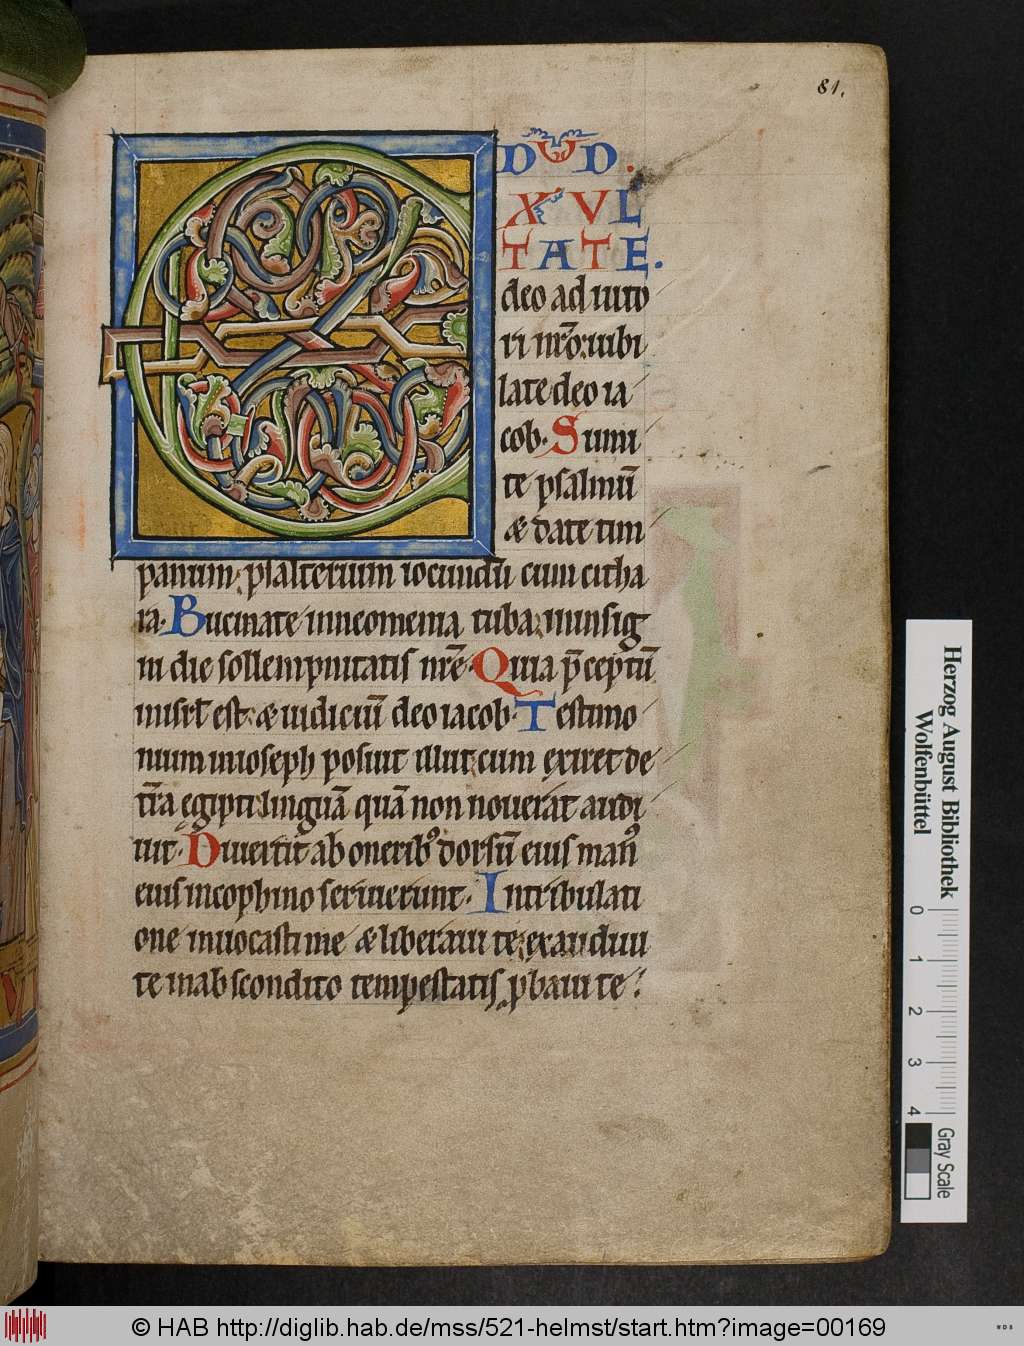 81.
D VD D.
EXVL
TATE.
deo adiuto
ri nr̄o: iubi
late deo ia
cob. Sumi
te psalmū
& date tim
panum: psalterium iocundū cum citha
ra. Bucinate inneomenia tuba: ininsig
ni die sollempnitatis nr̄e. Quia p̄ceptū
inisrl̄ est: & iudiciū deo iacob. Testimo
nium inioseph posuit illut: cum exiret de
tr̄ra egipti: linguā quā non noverat audi
uit. Diuertit ab onerib; dorsū eius: man;
eius incophino seruierunt. Intribulati
one inuocasti me & liberaui te: exaudiui
te inabscondito tempestatis, p̄baui te
Herzog August Bibliothek
Wolfenbüttel
0 1 2 3 4
Gray Scale
© HAB http://diglib.hab.de/mss/521-helmst/start.htm?image=00169
WDB